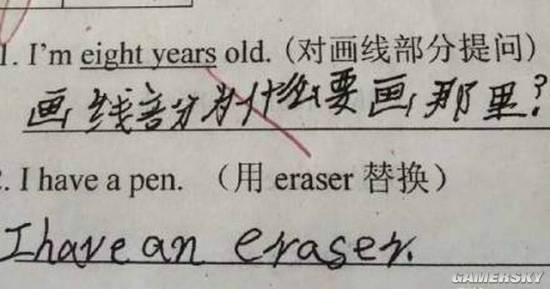 1. I'm eight years old. (对画线部分提问)
画线部分为什么要画那里?
2. I have a pen. （用 eraser 替换）
I have an eraser.
GAMERSKY